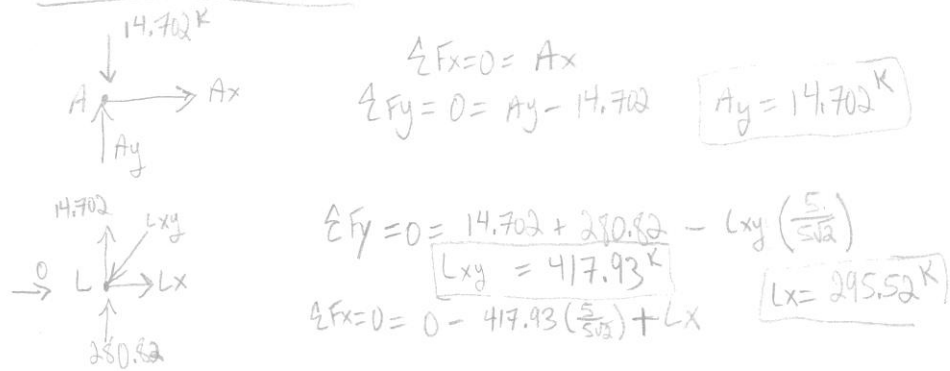 14.702ᴷ
A Ax
Ay
ΣFx=0= Ax
ΣFy= 0= Ay - 14.702 Ay = 14.702ᴷ
14.702
Lxy
0 L Lx
280.82
ΣFy =0= 14.702 + 280.82 - Lxy (5/5√2)
Lxy = 417.93ᴷ
ΣFx=0= 0 - 417.93 (5/5√2) + Lx Lx= 295.52ᴷ